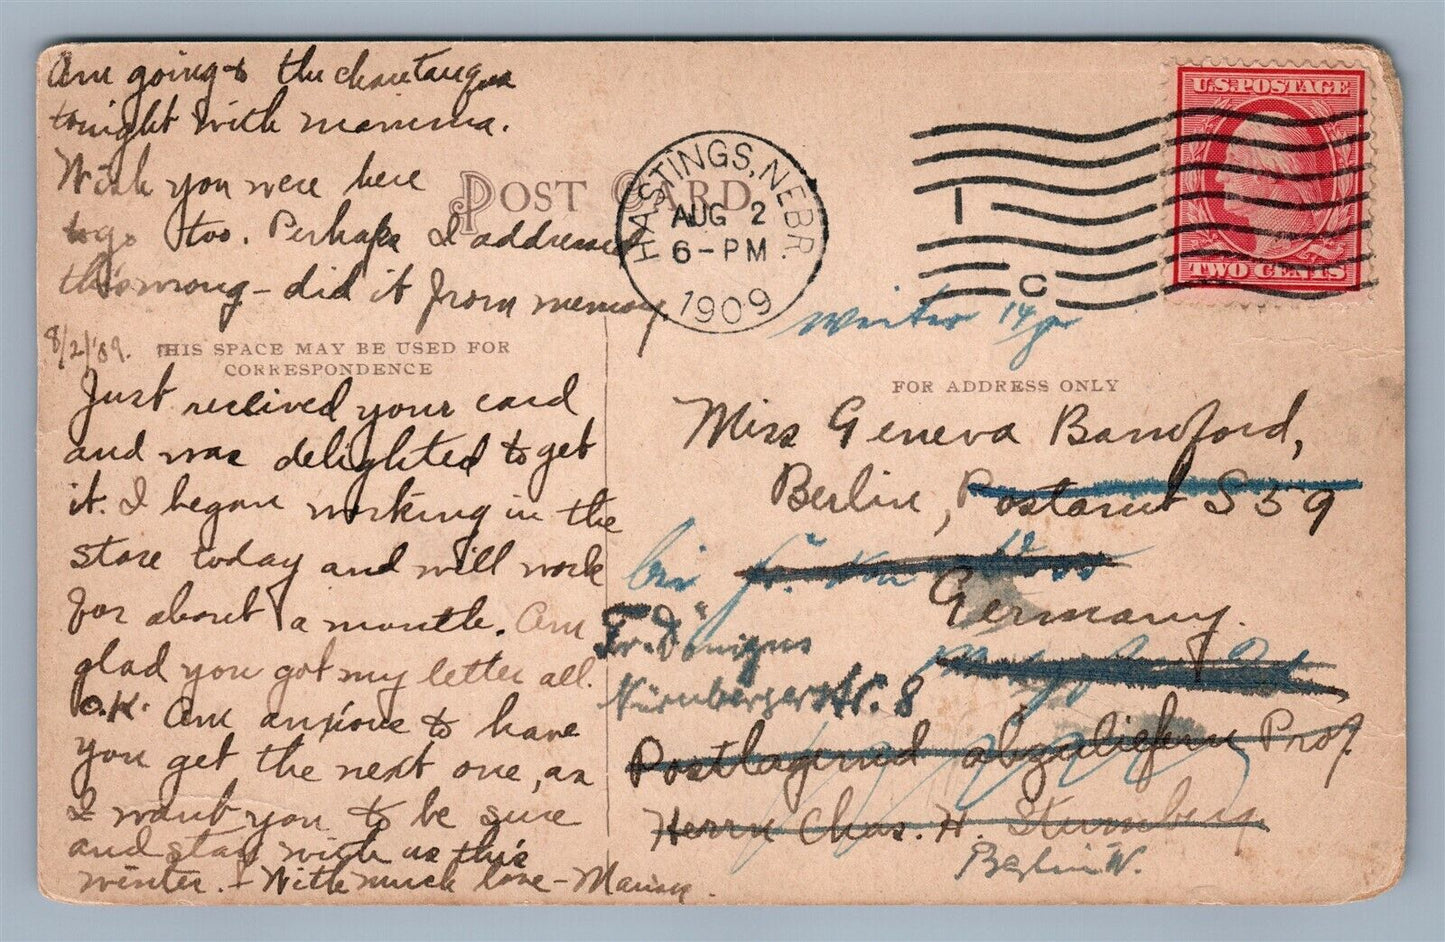 Am going to the chautauqua
tonight with mamma.
Wish you were here
to go too. Perhaps I addressed
this wrong - did it from memory.
8/2/'09.
THIS SPACE MAY BE USED FOR
CORRESPONDENCE
Just received your card
and was delighted to get
it. I began working in the
store today and will work
for about a month. Am
glad you got my letter all
O.K. Am anxious to have
you get the next one, as
I want you to be sure
and stay with us this
winter. - With much love -
POST CARD
HASTINGS, NEBR.
AUG 2
6-PM
1909
1
C
U.S. POSTAGE
TWO CENTS
weiter
FOR ADDRESS ONLY
Miss Geneva Bamford,
Berlin, Postamt S 59
bei Fr. von
Germany.
Fr. Dönigus
Nürnbergerstr. 8
Postlagernd abzuliefern Prof.
Herrn Chas. H.
Berlin W.